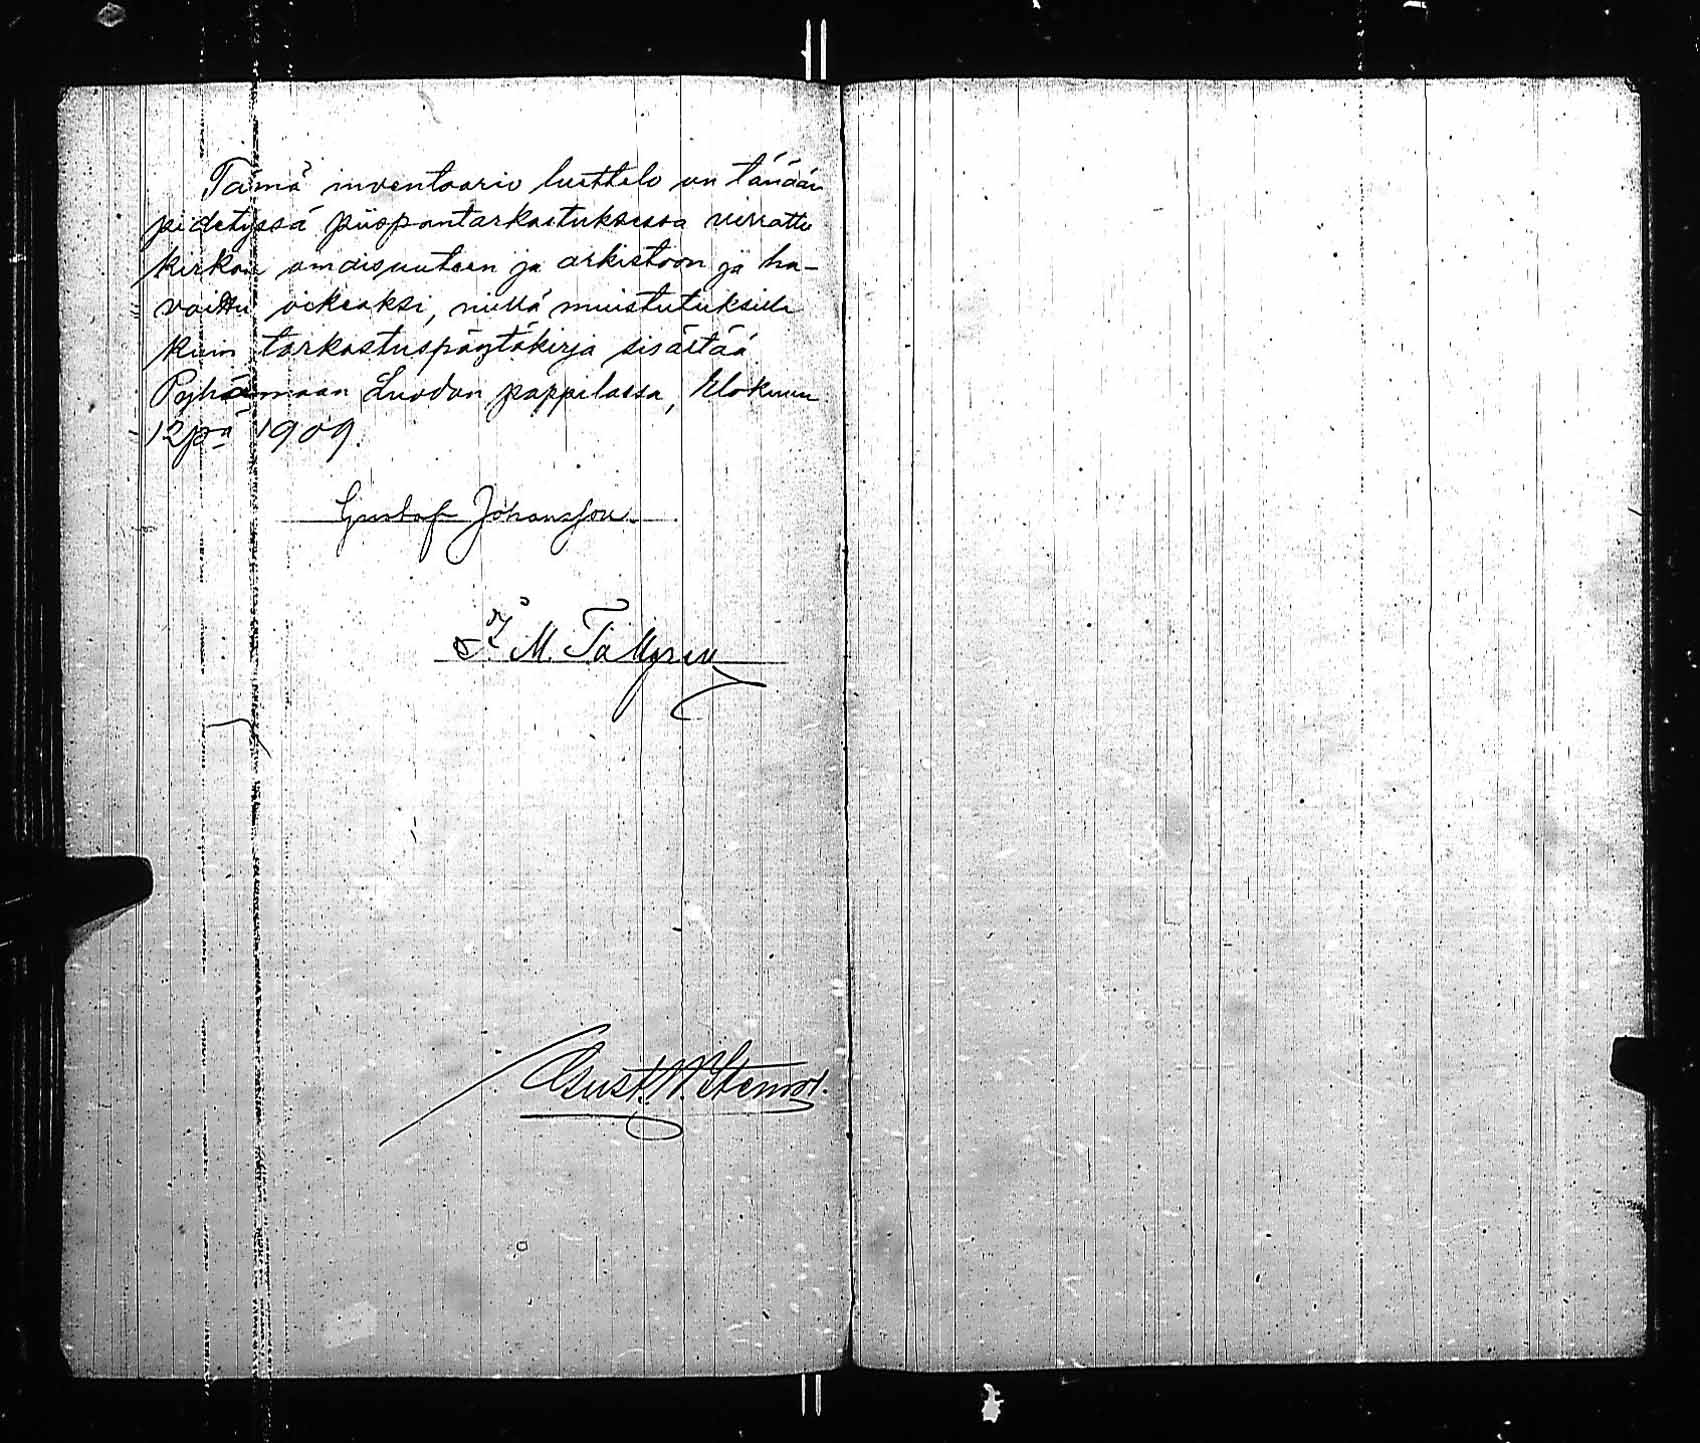 Tämä inventaario luettelo on tänään
pidetyssä piispantarkastuksessa verrattu
kirkon omaisuuteen ja arkistoon ja ha-
vaittu oikeaksi, niillä muistutuksilla
kuin tarkastuspöytäkirja sisältää
Pyhämaan Luodon pappilassa, Elokuun
12 p:nä 1909.
Gustaf Johansson
I. M. Tallgren
Gust. W.